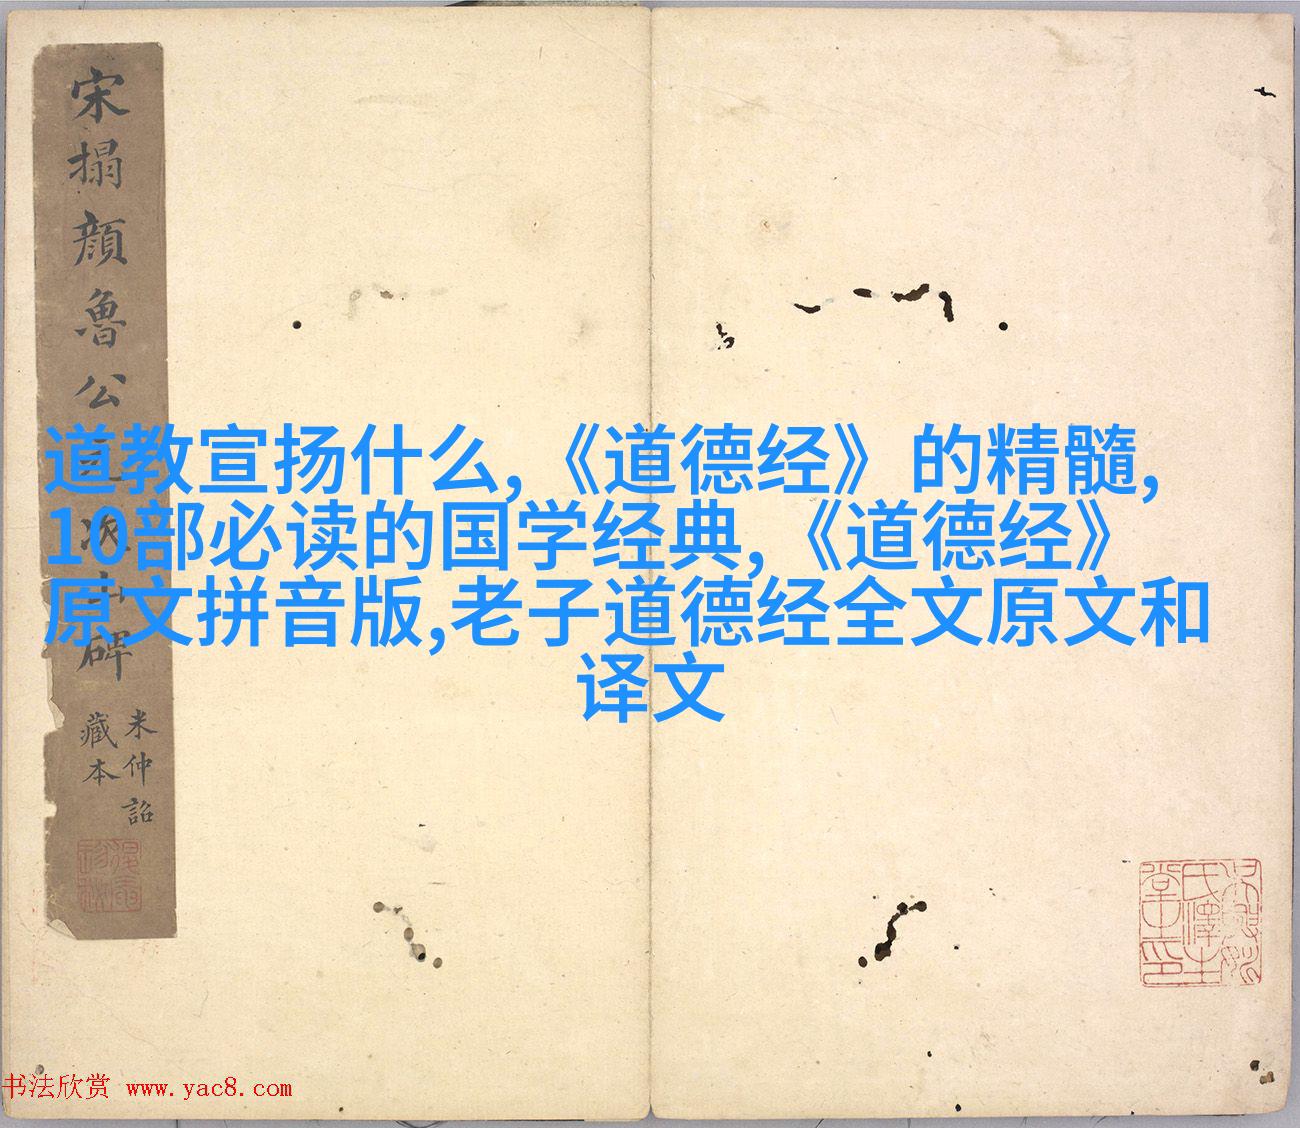 宋搨顔魯公
碑
米仲詔
藏本
道教宣扬什么,《道德经》的精髓,
10部必读的国学经典,《道德经》
原文拼音版,老子道德经全文原文和
译文
书法欣赏 www.yac8.com